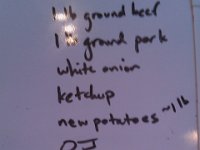 1 lb ground beef
1 lb ground pork
white onion
ketchup
new potatoes ~1 lb
OJ